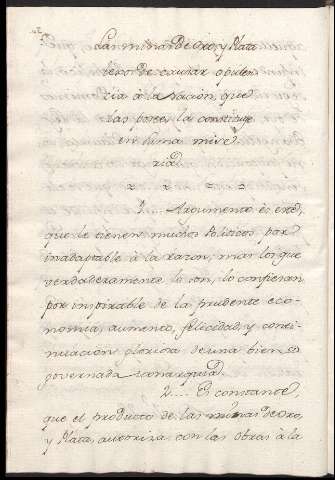 Las minas de Oro, y Plata
lexos de causar opulen
cia â la Nacion, que
las posee, la constituye
en suma mise
ria.
1... Argumento ês este,
que le tienen muchos Politicos por
inadaptable â la razon; mas los que
verdaderamente lo son, lo confiesan
por inspirable de la prudente eco-
nomia, aumento, felicidad, y conti-
nuacion gloriosa de una bien
governada Monarquia.
2... Es constante,
que el producto de las minas de Oro,
y Plata, autoriza con las otras â la